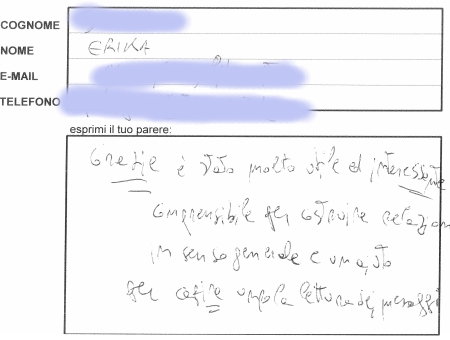 COGNOME
NOME ERIKA
E-MAIL
TELEFONO
esprimi il tuo parere:
Grazie è stato molto utile ed interessante
Comprensibile per costruire relazioni
in senso generale e un aiuto
per capire la lettura dei messaggi